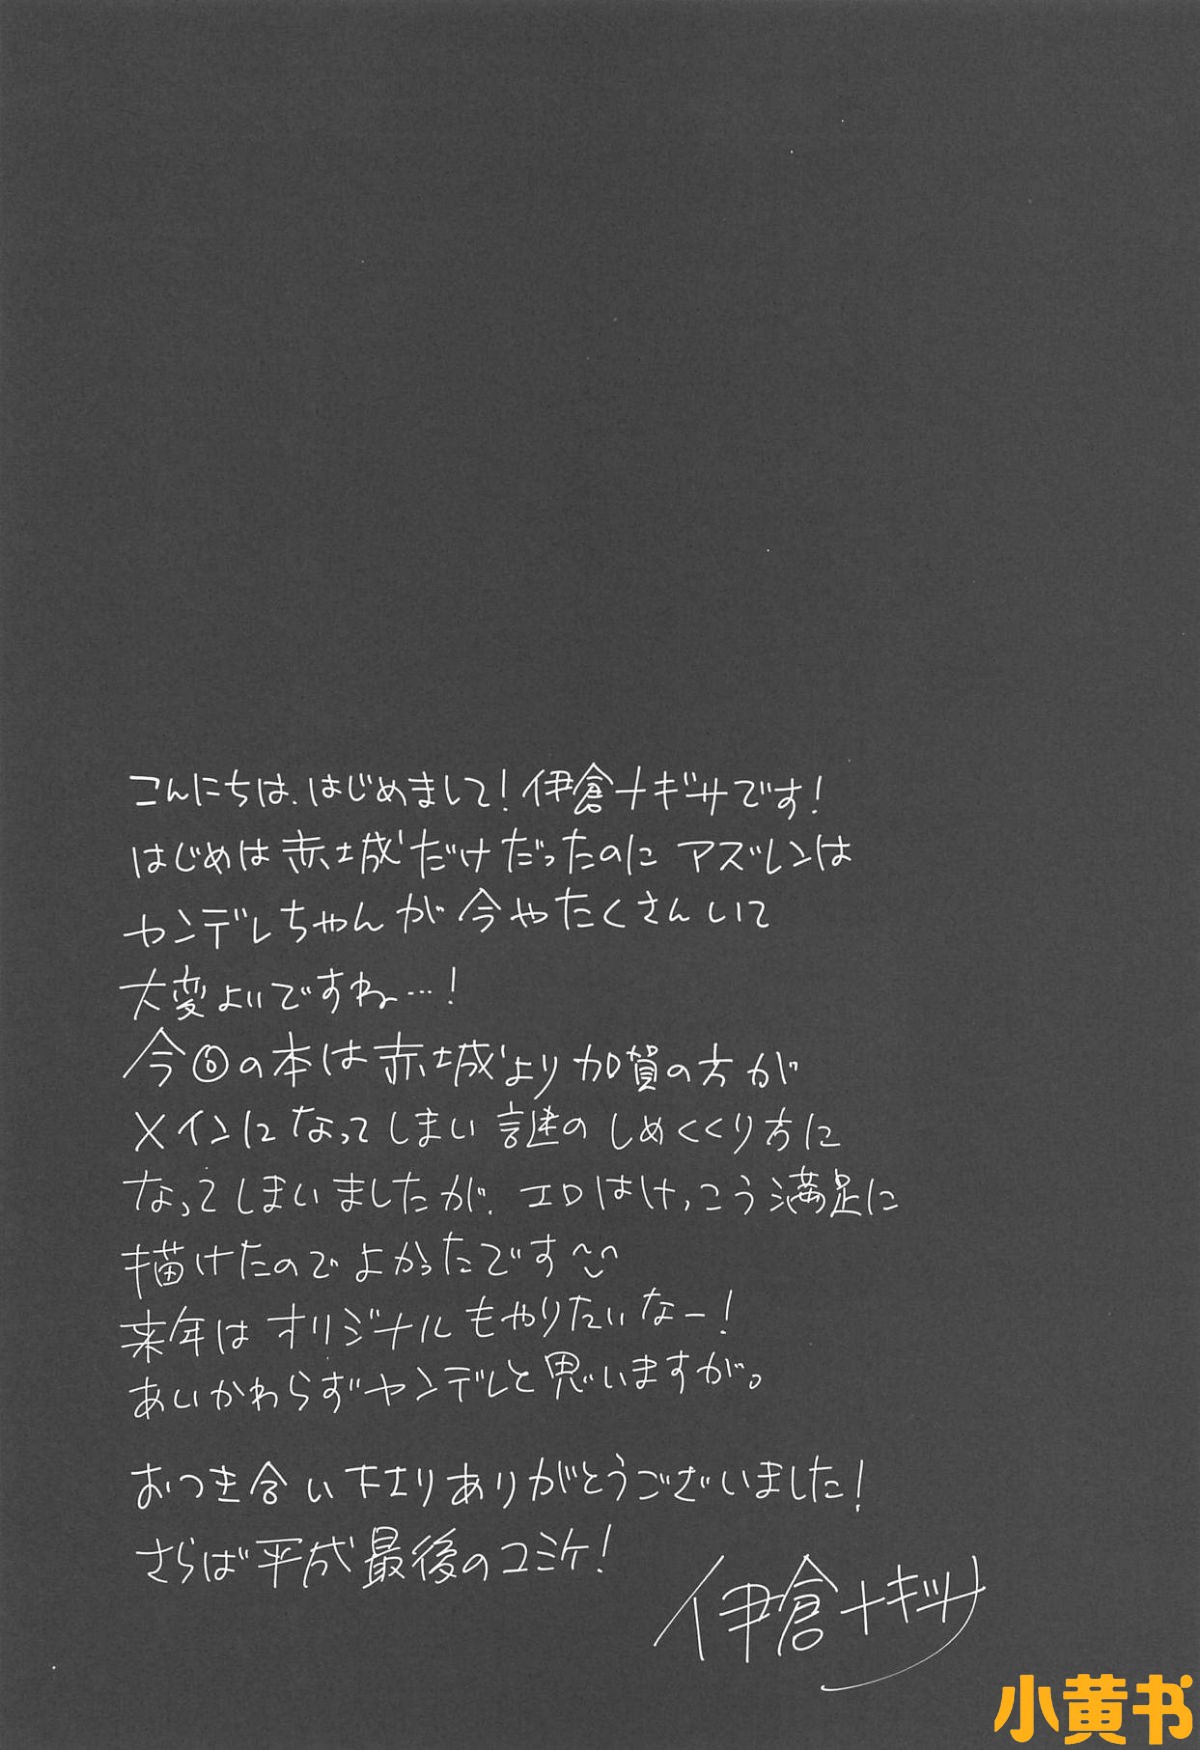 こんにちは、はじめまして！伊倉ナギサです！
はじめは赤城だけだったのにアズレンは
ヤンデレちゃんが今やたくさんいて
大変よいですね…！
今回の本は赤城より加賀の方が
メインになってしまい謎のしめくくり方に
なってしまいましたが、エロはけっこう満足に
描けたのでよかったです
来年はオリジナルもやりたいなー！
あいかわらずヤンデレと思いますが。
おつき合い下さりありがとうございました！
さらば平成最後のコミケ！
伊倉ナギサ
小黄书